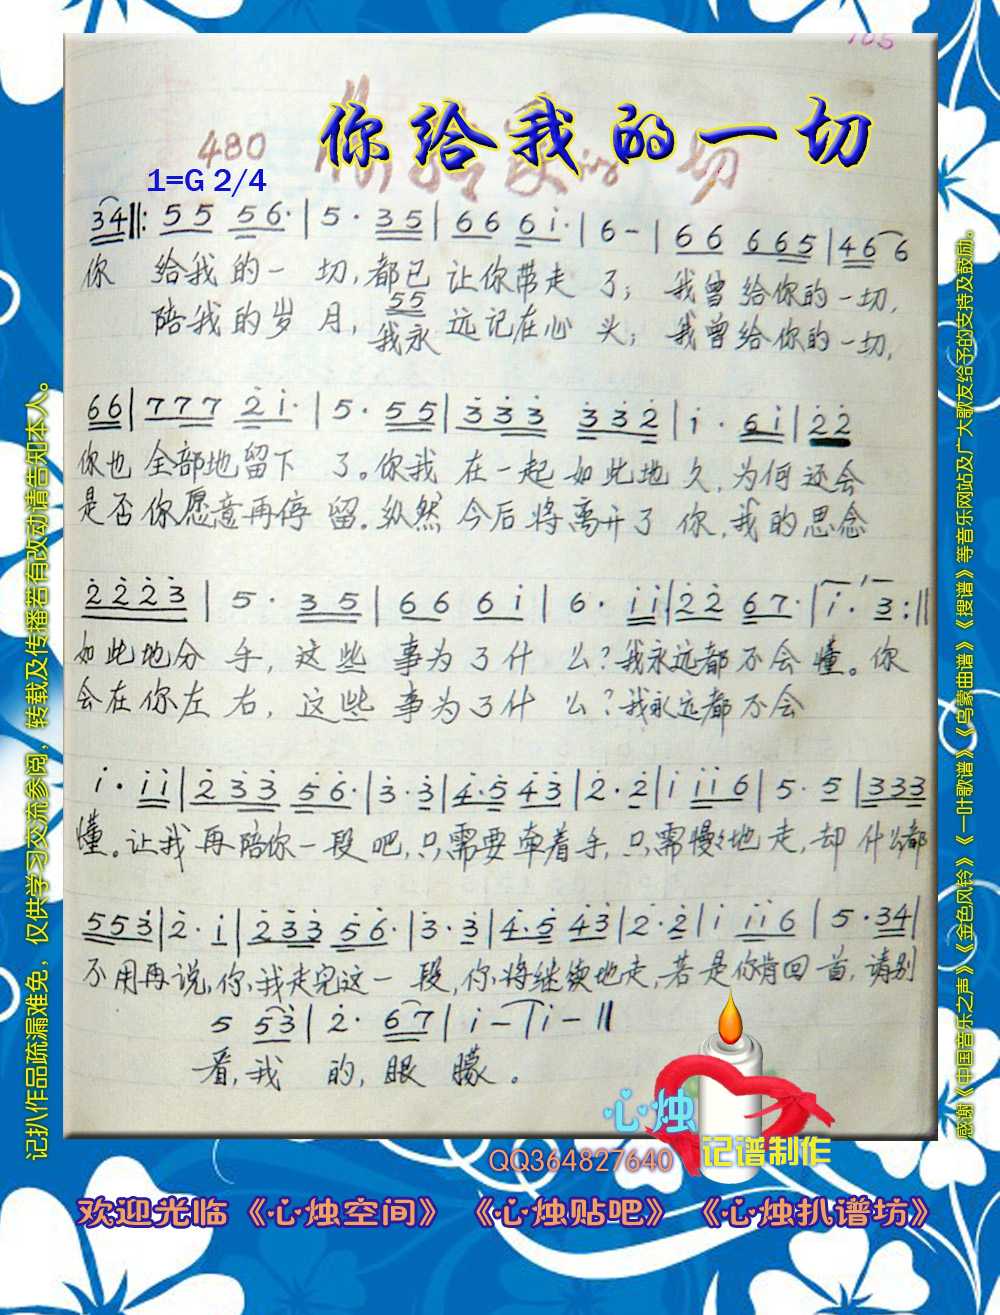 105
480
你给我的一切
1=G 2/4
34 ‖: 55 56· | 5· 35 | 66 6i· | 6- | 66 665 | 46 6
你 给我的一 切,都已 让你带走 了; 我曾给你的一切,
55
陪我的岁 月, 我永 远记在心 头; 我曾给你的一切,
66 | 777 2i· | 5· 55 | 333 332 | i· 6i | 22
你也 全部地留下 了。你我 在一起如此地 久,为何还会
是否你愿意再停 留。纵然 今后将离开了 你,我的思念
2223 | 5· 35 | 66 6i | 6· ii | 22 67· | i· 3 :‖
如此地分 手, 这些 事为了什 么?我永远都不会 懂。你
会在你左 右, 这些 事为了什 么?我永远都不会
i· ii | 233 56· | 3·3 | 4·5 43 | 2·2 | i ii6 | 5· 5 | 333
懂。让我再陪你一段吧,只需要牵着手,只需慢々地走,却 什么都
553 | 2· i | 233 56· | 3·3 | 4·5 43 | 2·2 | i ii6 | 5·34 |
不用再说,你、我走完这一段,你、将继续地走,若是你肯回首,请别
5 53 | 2· 67 | i- | i- ‖
看,我 的,眼 朦。
心烛
记谱制作
QQ364827640
欢迎光临《心烛空间》 《心烛贴吧》 《心烛扒谱坊》
记扒作品疏漏难免，仅供学习交流参阅，转载及传播若有改动请告知本人。
感谢《中国音乐之声》《金色风铃》《一叶歌谱》《乌蒙曲谱》《搜谱》等音乐网站及广大歌友给予的支持及鼓励。